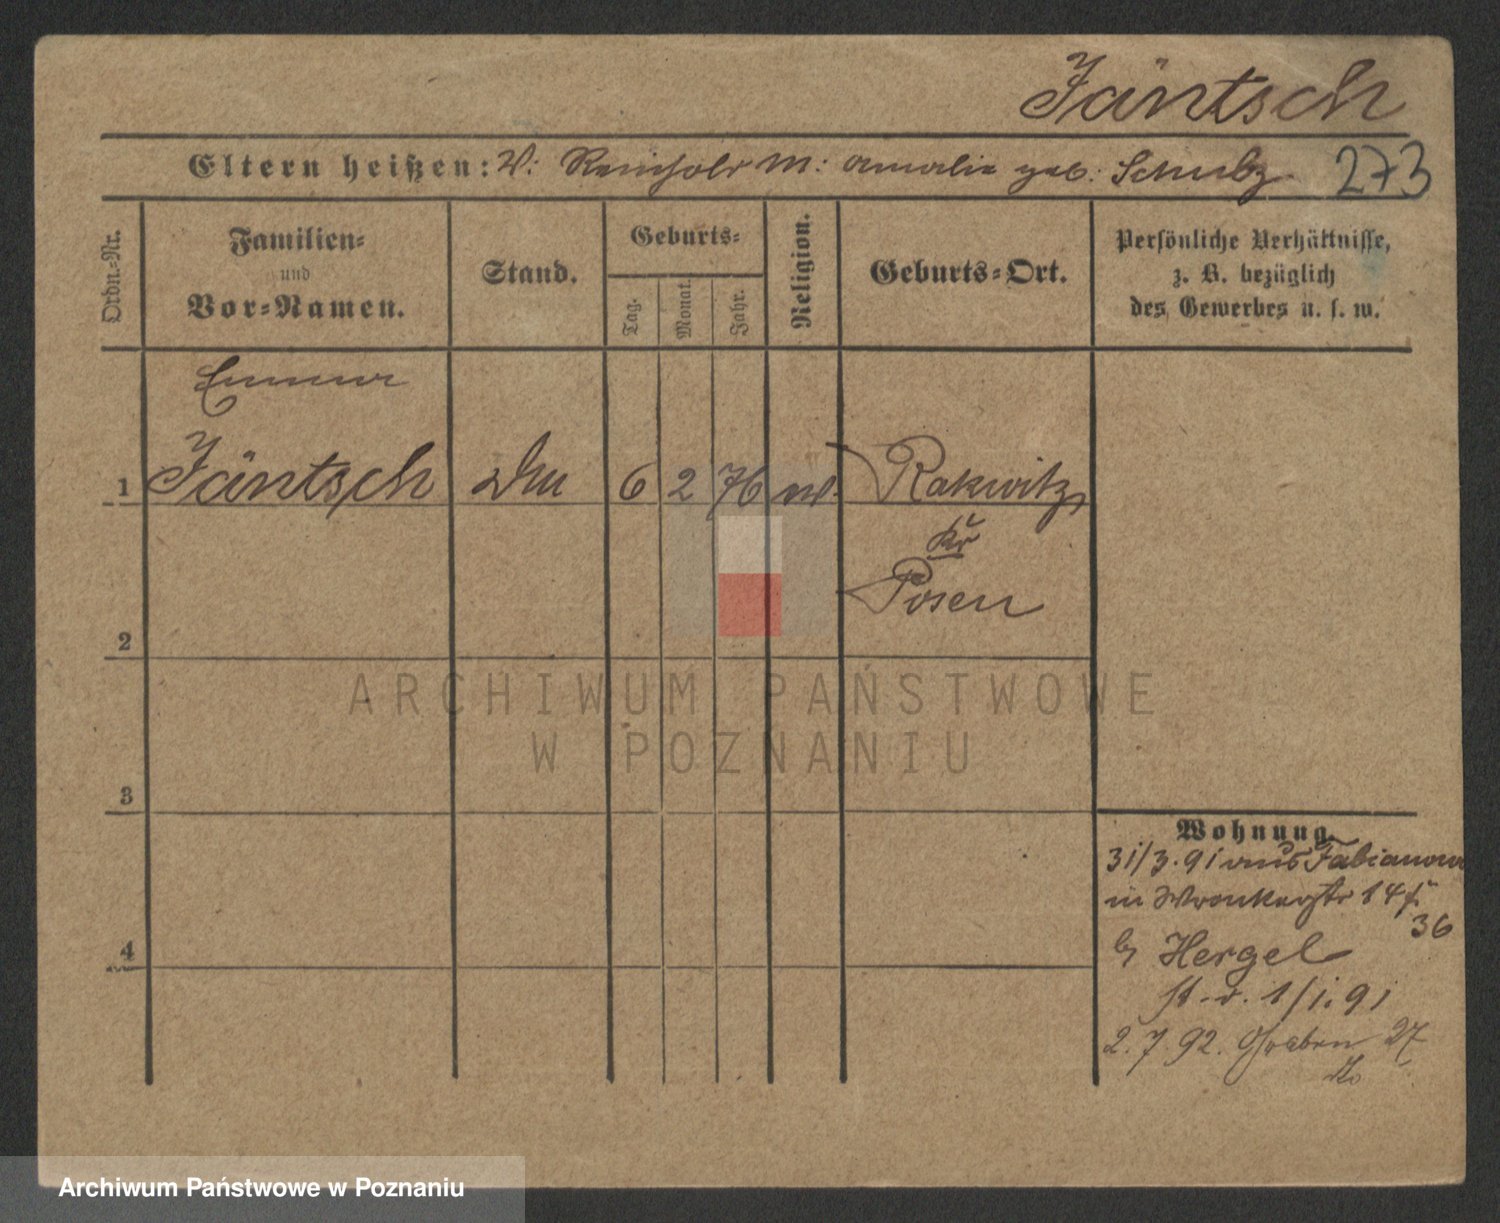 Jäntsch
Eltern heißen: V: Reinhold M: Amalie geb. Schulz
273
Ordn.-Nr.
Familien-
und
Vor-Namen.
Stand.
Geburts-
Tag.
Monat.
Jahr.
Religion.
Geburts-Ort.
Persönliche Verhältnisse,
z. B. bezüglich
des Gewerbes u. s. w.
Emma
1 Jäntsch 6 2 76 Rakwitz
Kr
Posen
2
3
4
Wohnung.
31/3. 91 aus Fabianowo
in Wronkerstr 14
36
b Hergel
1/1. 91
2. 7 92. Graben 27
ARCHIWUM PAŃSTWOWE
W POZNANIU
Archiwum Państwowe w Poznaniu